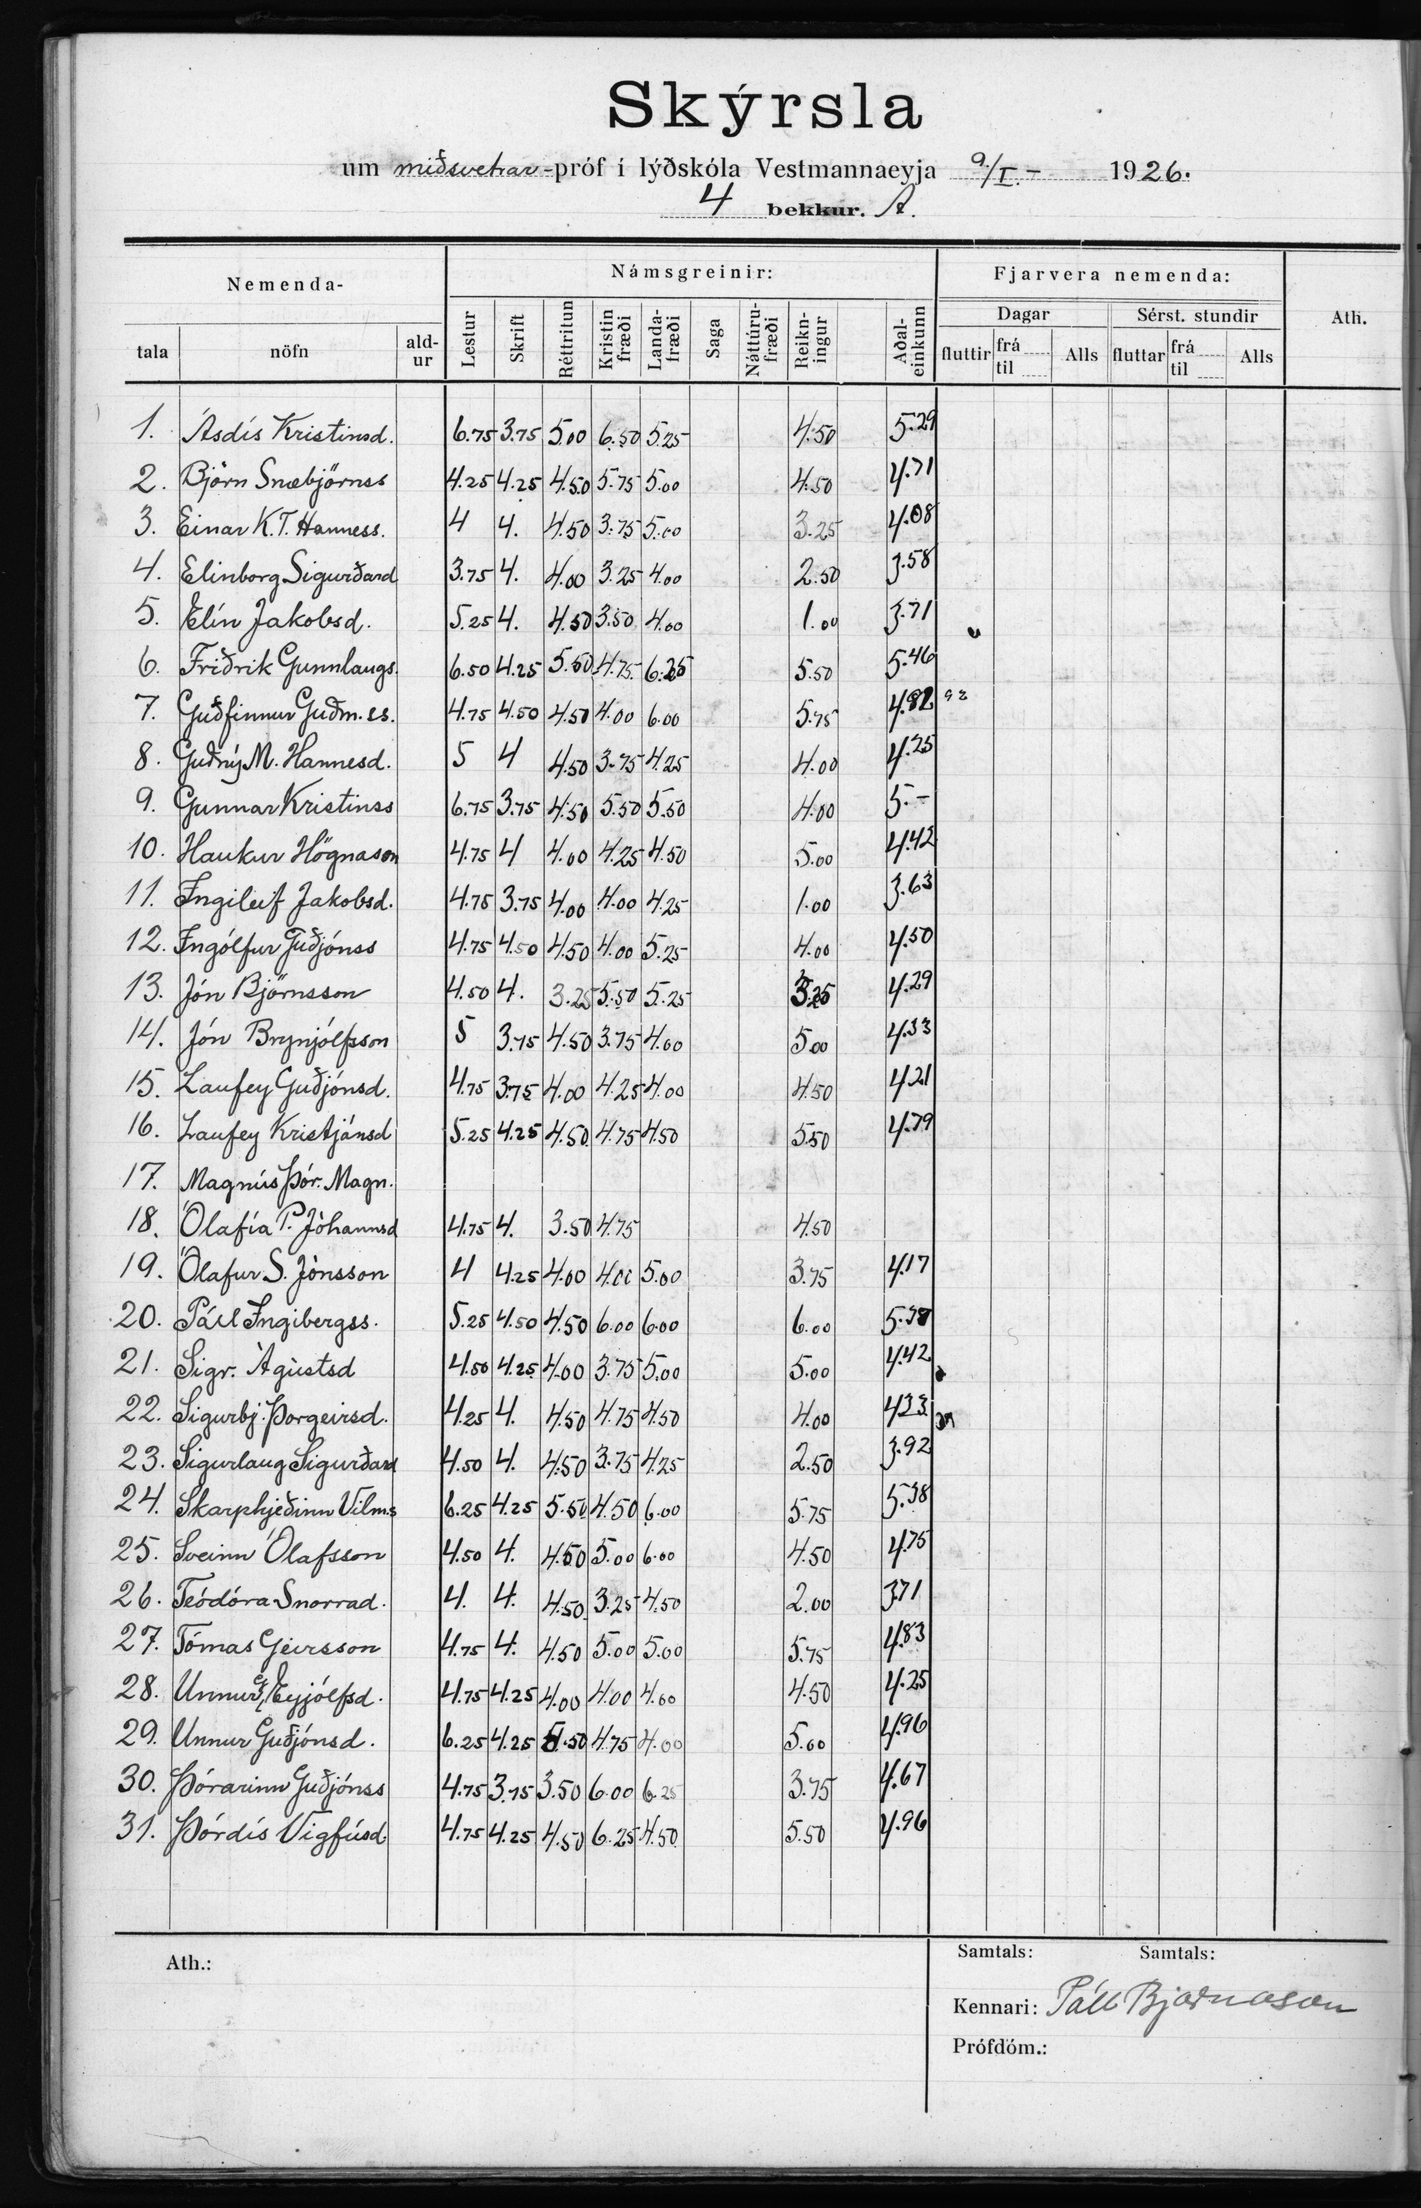 Skýrsla
um miðsvetrar-próf í lýðskóla Vestmannaeyja 9/I.- 1926.
4 bekkur. A.
Nemenda- Námsgreinir: Fjarvera nemenda: Ath.
Dagar Sérst. stundir
tala nöfn ald-ur Lestur Skrift Réttritun Kristin fræði Landa-fræði Saga Náttúru-fræði Reikn-ingur Aðal-einkunn fluttir frá til Alls fluttar frá til Alls
1. Ásdís Kristinsd. 6.75 3.75 5.00 6.50 5.25 4.50 5.29
2. Björn Snæbjörnss 4.25 4.25 4.50 5.75 5.00 4.50 4.71
3. Einar K.T. Hanness. 4 4. 4.50 3.75 5.00 3.25 4.08
4. Elinborg Sigurðard 3.75 4. 4.00 3.25 4.00 2.50 3.58
5. Elín Jakobsd. 5.25 4. 4.50 3.50 4.00 1.00 3.71
6. Friðrik Gunnlaugs. 6.50 4.25 5.50 4.75 6.25 5.50 5.46
7. Guðfinnur Guðm.ss. 4.75 4.50 4.50 4.00 6.00 5.75 4.92 92
8. Guðný M. Hannesd. 5 4 4.50 3.75 4.25 4.00 4.25
9. Gunnar Kristinss 6.75 3.75 4.50 5.50 5.50 4.00 5.-
10. Haukur Högnason 4.75 4 4.00 4.25 4.50 5.00 4.42
11. Ingileif Jakobsd. 4.75 3.75 4.00 4.00 4.25 1.00 3.63
12. Ingólfur Guðjónss 4.75 4.50 4.50 4.00 5.25 4.00 4.50
13. Jón Björnsson 4.50 4. 3.25 5.50 5.25 3.25 4.29
14. Jón Brynjólfsson 5 3.75 4.50 3.75 4.00 5.00 4.33
15. Laufey Guðjónsd. 4.75 3.75 4.00 4.25 4.00 4.50 4.21
16. Laufey Kristjánsd 5.25 4.25 4.50 4.75 4.50 5.50 4.79
17. Magnús Þór. Magn.
18. Ólafía P. Jóhannsd 4.75 4. 3.50 4.75 4.50
19. Ólafur S. Jónsson 4 4.25 4.00 4.00 5.00 3.75 4.17
20. Páll Ingibergss. 5.25 4.50 4.50 6.00 6.00 6.00 5.38
21. Sigr. Ágústsd 4.50 4.25 4.00 3.75 5.00 5.00 4.42
22. Sigurbj. Þorgeirsd. 4.25 4. 4.50 4.75 4.50 4.00 4.33
23. Sigurlaug Sigurðard 4.50 4. 4.50 3.75 4.25 2.50 3.92
24. Skarphjeðinn Vilms 6.25 4.25 5.50 4.50 6.00 5.75 5.38
25. Sveinn Ólafsson 4.50 4. 4.50 5.00 6.00 4.50 4.75
26. Teódóra Snorrad. 4. 4. 4.50 3.25 4.50 2.00 3.71
27. Tómas Geirsson 4.75 4. 4.50 5.00 5.00 5.75 4.83
28. Unnur G. Eyjólfsd. 4.75 4.25 4.00 4.00 4.00 4.50 4.25
29. Unnur Guðjónsd. 6.25 4.25 5.50 4.75 4.00 5.00 4.96
30. Þórarinn Guðjónss 4.75 3.75 3.50 6.00 6.25 3.75 4.67
31. Þórdís Vigfúsd 4.75 4.25 4.50 6.25 4.50 5.50 4.96
Ath.: Samtals: Samtals:
Kennari: Páll Bjarnason
Prófdóm.: